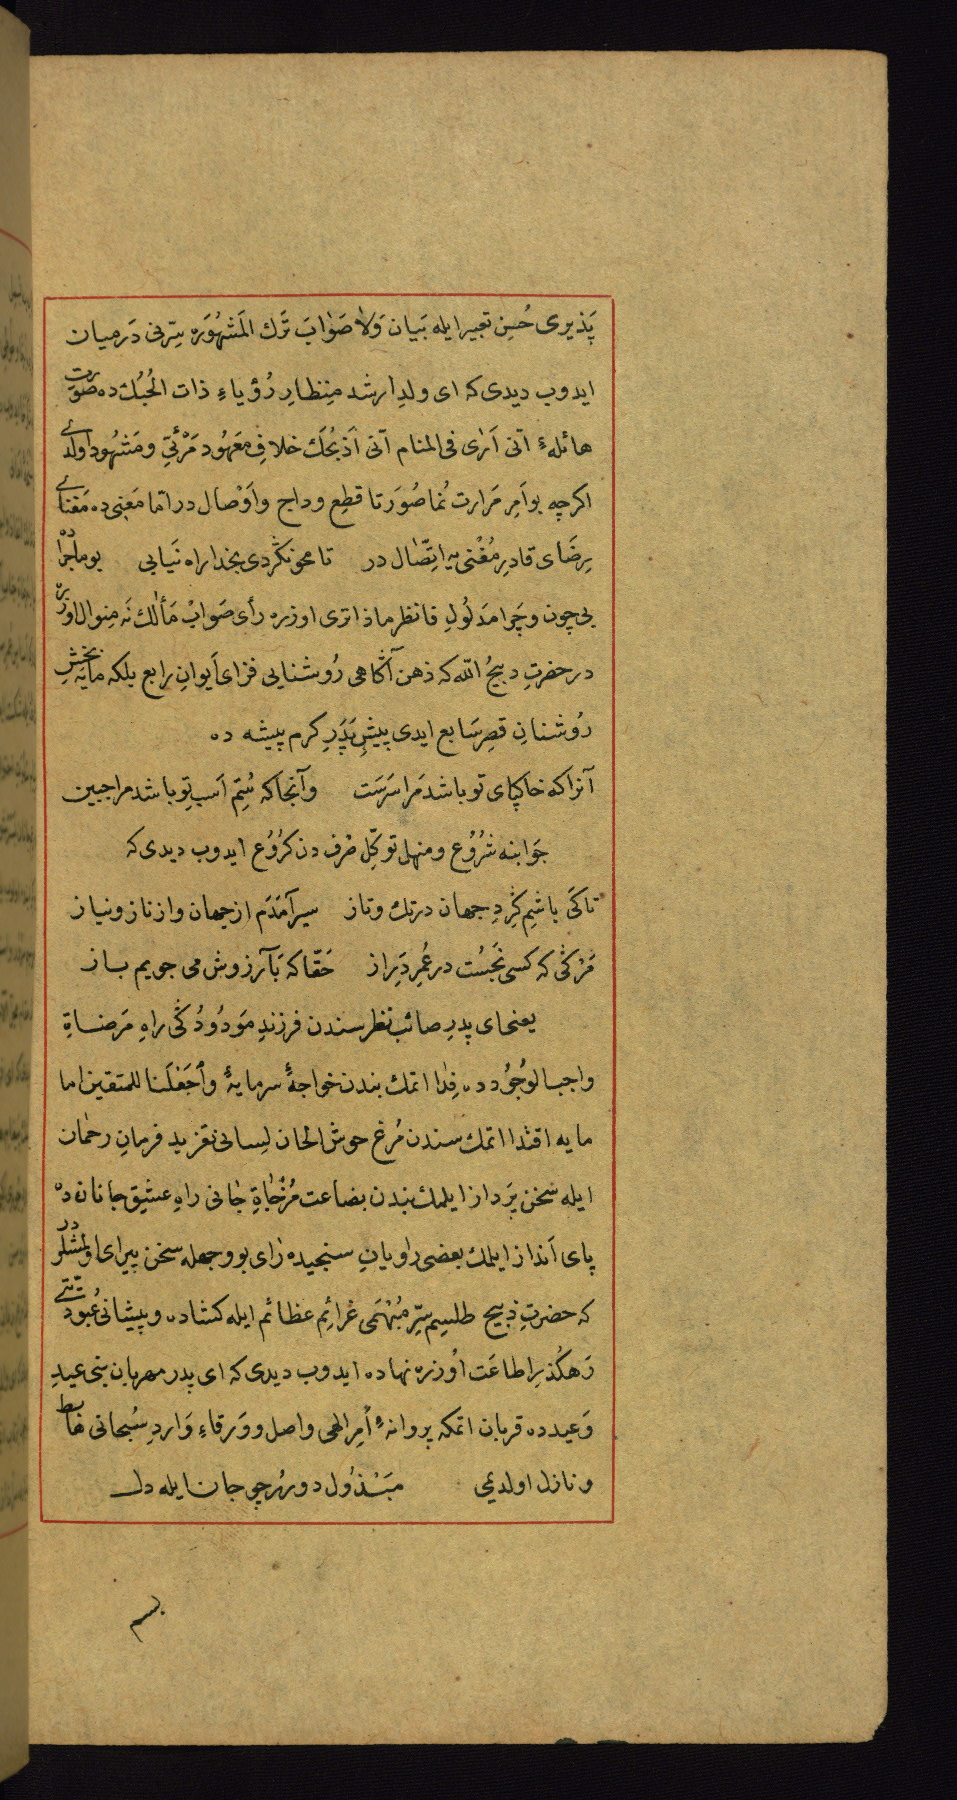 پَذیری حُسنِ تعبیر ایله بَیان وَلا صَوٰابَ تَرَك المَشهُورَه سِرّنی دَرمیان
ایدوب دیدی که ای ولدِ ارشد مِنظارِ رُؤیاءِ ذات الحُبُك ده صُورَت
هائلهٔ اَنّی اَرٰی فی المنام اَنّی اَذبَحُكَ خلافِ معَهُود مَرْئیّ و مَشهُود اولدی
اکرچه بو اَمِر مَرارت نُما صُوَرتا قطعِ وداج و اَوْصال در اتما مَعنِی ده مَغنای
بِرضَای قادرِ مُغْنی یه اتِّصٰال در تا محو نکَردی بخدا راه نَیابی بو ماجَرٰا ده
بی چون و چَرا مَدلُولِ فانظر ماذا ترٰی اوزره رأی صَوابْ مَأٰلك نَه مِنوال اوزره
در حضرتِ ذبیحُ الله که ذهن آکاهی رُوشنایی فزای اَیوانِ رابع بلکه مایَه بخشِ
رُوشنانِ قصِر سَابع ایدی پیشِ پَدَرِ کرم پیشه ده
آنرا که خاکپای تو باشد مَرا سَرَست وآنجا که سُتِم اَسبِ تو باشد مرا جبین
جَوابنه شُرُوع و منهل توکّل صِرف دن کرُوُع ایدوب دیدی که
تاکَی باشیم کِردِ جهان درتك وتاز سیر آمَدَم از جهان واز ناز و نیاز
مَرْکی که کسی نَجُست در عُمِر دَراز حَقّا که بَآرزوش می جویم باز
یعنی ای پدرِ صائب نظر سندن فرزندِ مَودُودُکی راهِ مَرضاةِ
واجب الوُجُود ده فِدٰا اتمك بندن خواجهٔ سرمایهٔ وَاجَعَلَنا للمتقین اماما
مایه اقتدا اتمك سندن مُرغ خوش الحان لِسانی نغزیدِ فرمانِ رحمٰان
ایله سخن پَرداز ایلمك بندن بضاعت مُزجٰاةِ جٰانی راهِ عشِق جانان ده
پای اَنداز ایلمك بعضی راویانِ سنجیده رٰای بو وجهله سخن پیرای اولمشلردر
که حضرتِ ذبیح طلسِم سِرّ مُبْهَمی عَزائِم عظائم ایله کشاده و پیشانی عُبُودیّتی
رَهکُذرِ اطاعَت اوُزره نهاده ایدوب دیدی که ای پدر مهربان بنی عیدِ
وَعیدده قربان اتمکه پروانهٔ اَمِر الهی واصل و وَرقاءِ وَاردِ سُبحانی هابط
و نازل اولدیمی مَبْذوُل دورُر چو جان ایله دل
بسم